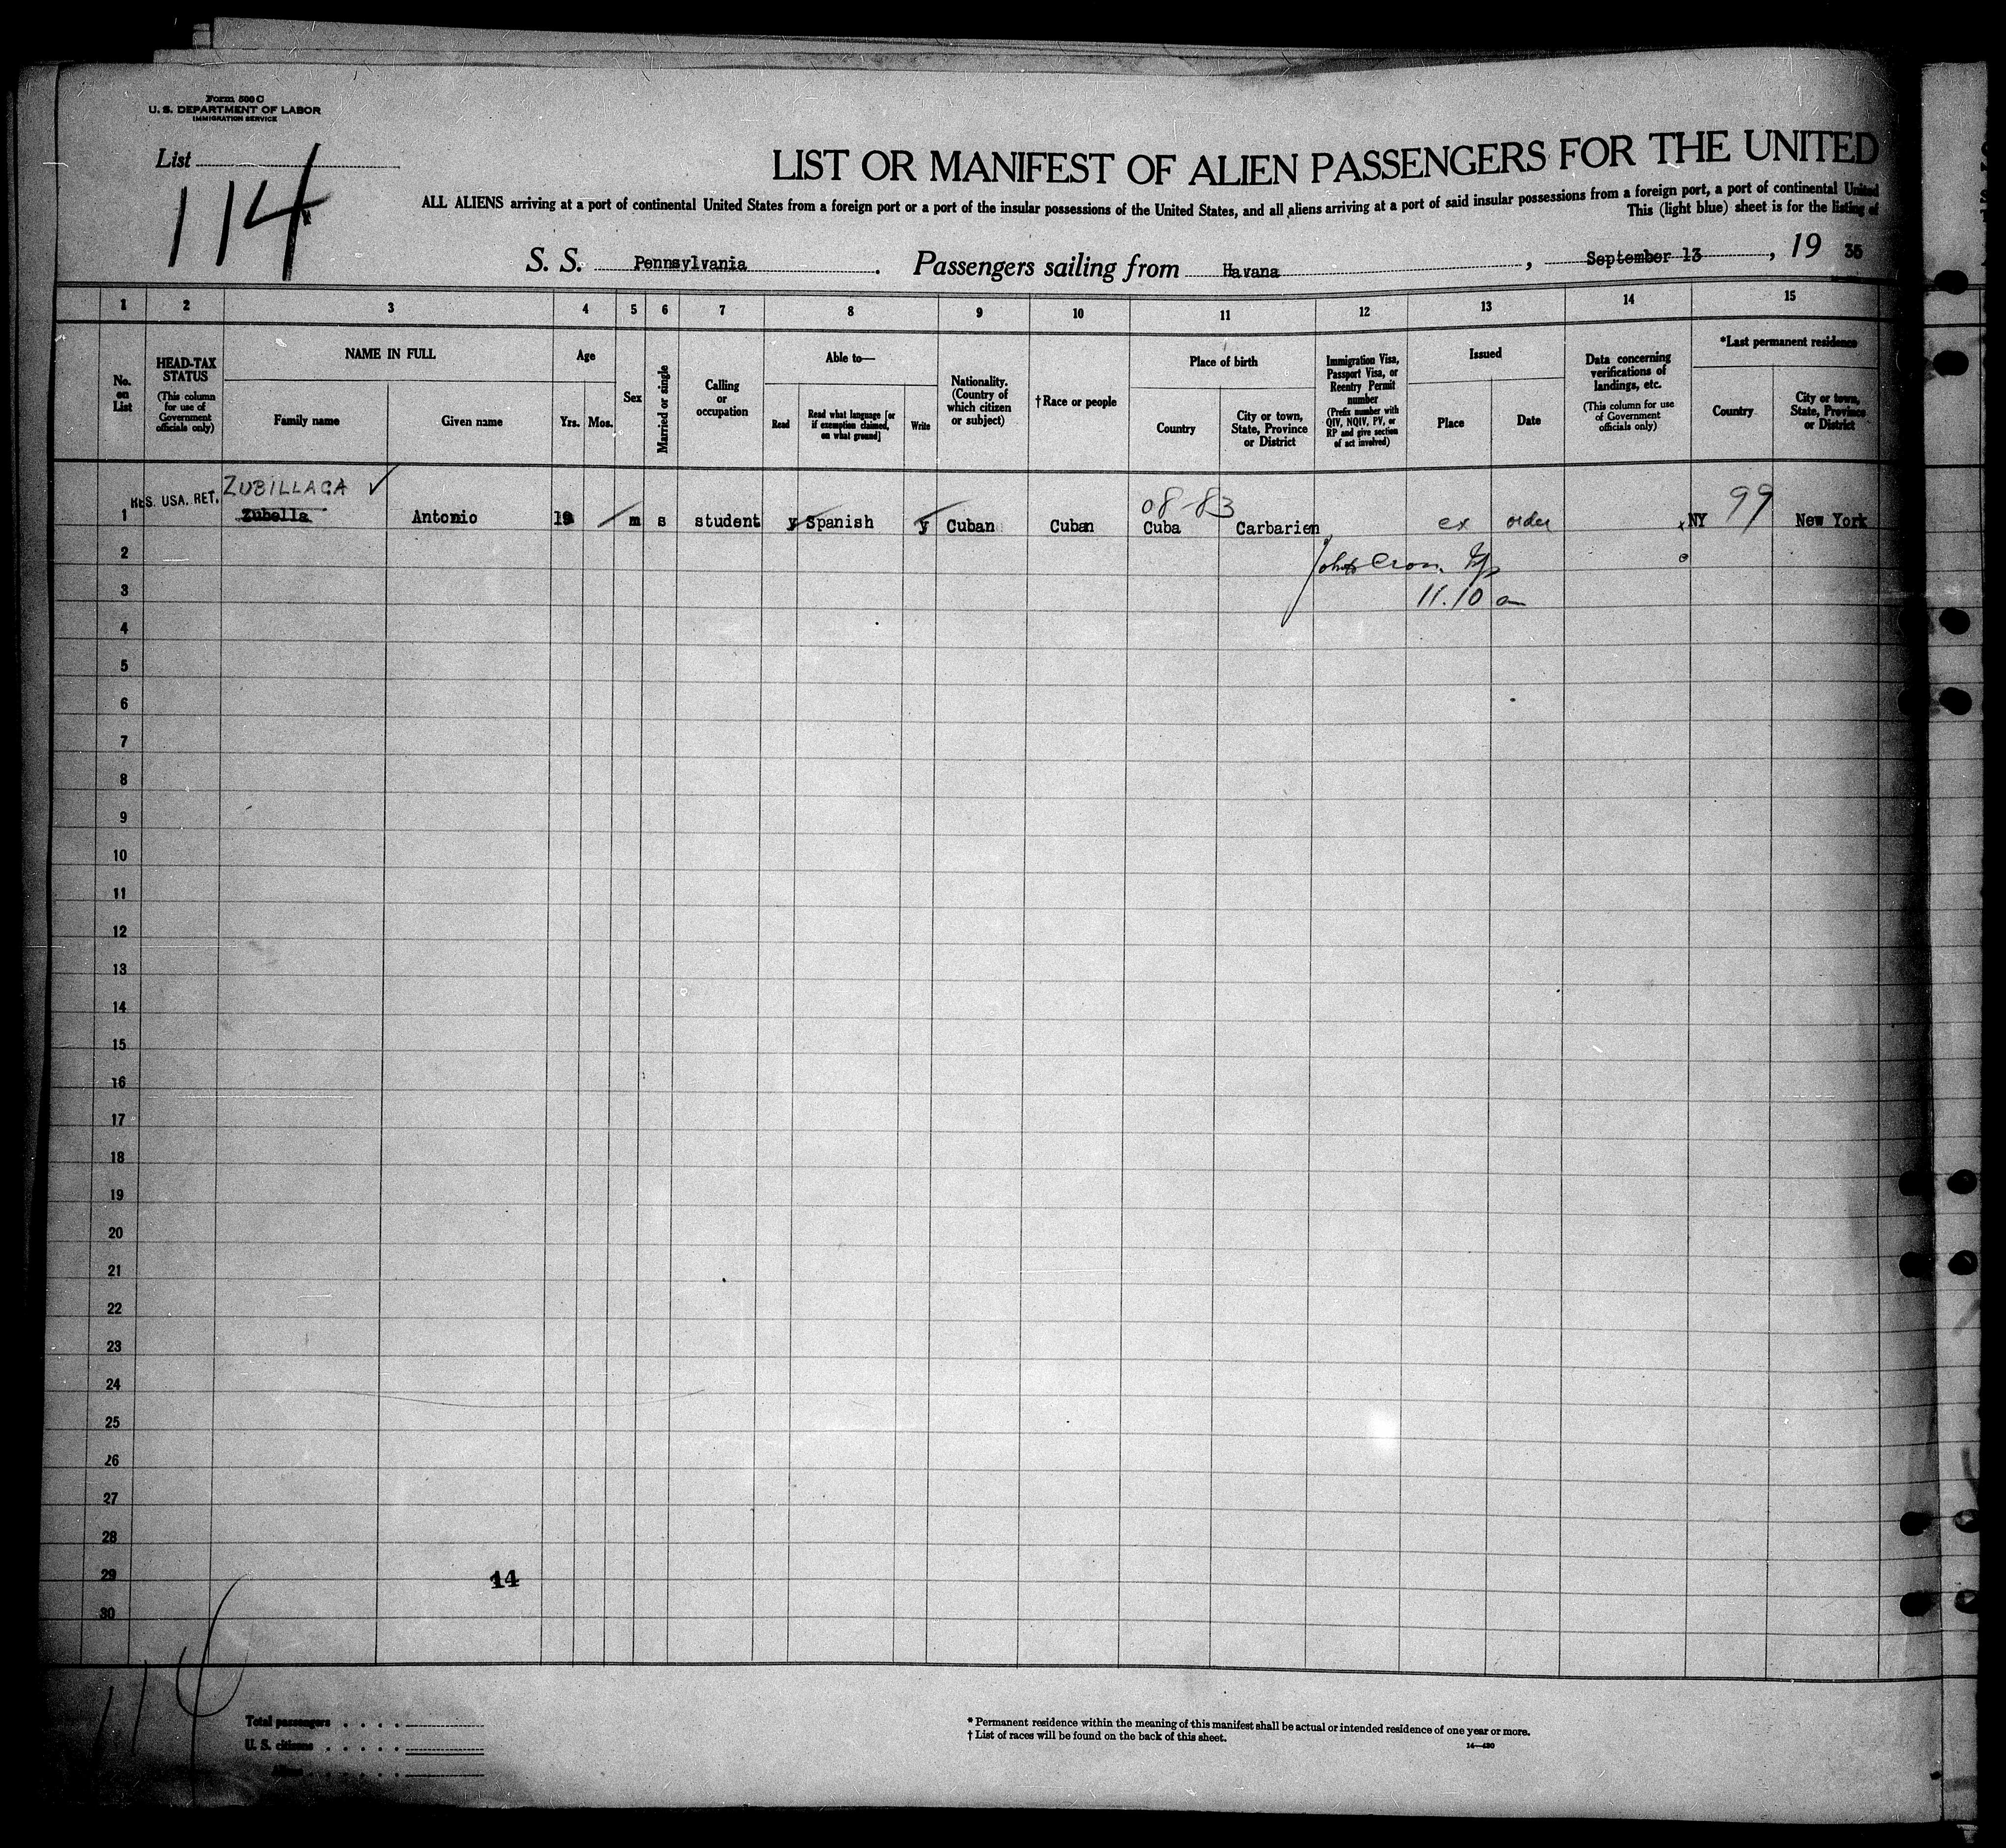 Form 500 C
U. S. DEPARTMENT OF LABOR
IMMIGRATION SERVICE
List
114
LIST OR MANIFEST OF ALIEN PASSENGERS FOR THE UNITED
ALL ALIENS arriving at a port of continental United States from a foreign port or a port of the insular possessions of the United States, and all aliens arriving at a port of said insular possessions from a foreign port, a port of continental United
This (light blue) sheet is for the listing of
S. S. Pennsylvania. Passengers sailing from Havana, September 13, 19 35
1 2 3 4 5 6 7 8 9 10 11 12 13 14 15
No. on List
HEAD-TAX STATUS
(This column for use of Government officials only)
NAME IN FULL
Family name
Given name
Age
Yrs.
Mos.
Sex
Married or single
Calling or occupation
Able to—
Read
Read what language [or if exemption claimed, on what ground]
Write
Nationality. (Country of which citizen or subject)
†Race or people
Place of birth
Country
City or town, State, Province or District
Immigration Visa, Passport Visa, or Reentry Permit number
(Prefix number with QIV, NQIV, PV, or RP and give section of act involved)
Issued
Place
Date
Data concerning verifications of landings, etc.
(This column for use of Government officials only)
*Last permanent residence
Country
City or town, State, Province or District
ZUBILLAGA ✓
08-83
99
1 RES. USA. RET. Zubella Antonio 19 m s student y Spanish y Cuban Cuban Cuba Carbarien ex order x NY New York
2
3 11.10 am
4
5
6
7
8
9
10
11
12
13
14
15
16
17
18
19
20
21
22
23
24
25
26
27
28
29 14
30
114
Total passengers
U. S. citizens
Aliens
* Permanent residence within the meaning of this manifest shall be actual or intended residence of one year or more.
† List of races will be found on the back of this sheet.
14—430